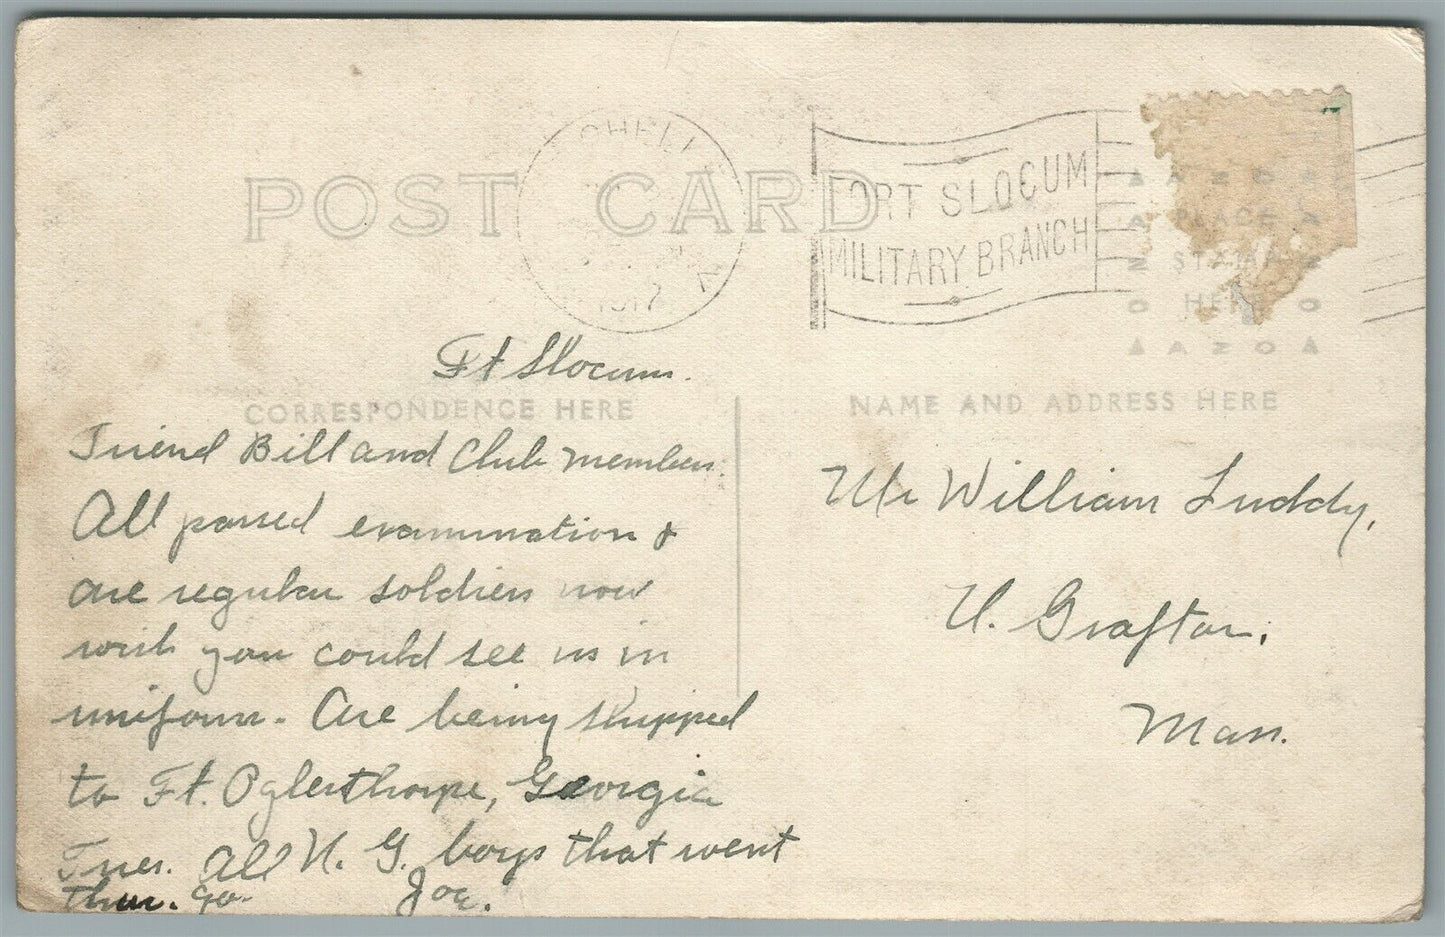 POST CARD
CHELLE
1917
N
FORT SLOCUM
MILITARY BRANCH
AZO
PLACE
STAMP
HERE
AZO
Ft Slocum.
CORRESPONDENCE HERE
NAME AND ADDRESS HERE
Friend Bill and Club members.
All passed examination &
are regular soldiers now
wish you could see us in
uniform. Are being shipped
to Ft. Oglesthorpe, Georgia
Tues. All N. G. boys that went
thur. go. Joe.
Mr William Luddy,
N. Grafton,
Mass.